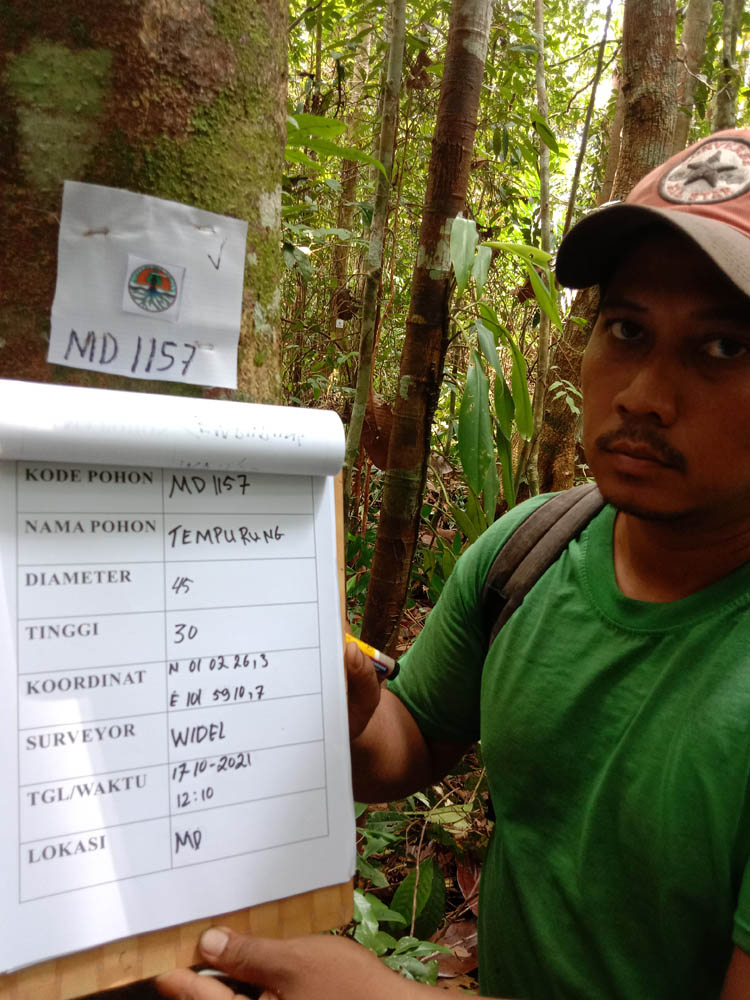 MD 1157
KODE POHON MD 1157
NAMA POHON TEMPURUNG
DIAMETER 45
TINGGI 30
KOORDINAT N 01 02 26,3
E 101 59 10,7
SURVEYOR WIDEL
TGL/WAKTU 17-10-2021
12:10
LOKASI MD